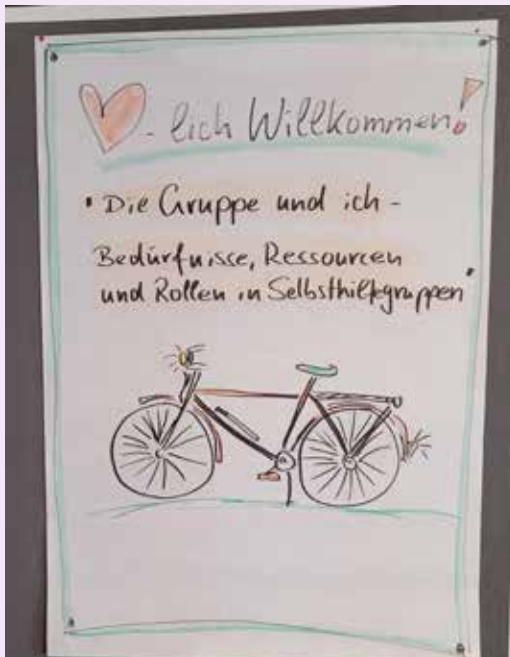 - lich Willkommen!
"Die Gruppe und ich -
Bedürfnisse, Ressourcen
und Rollen in Selbsthilfegruppen"